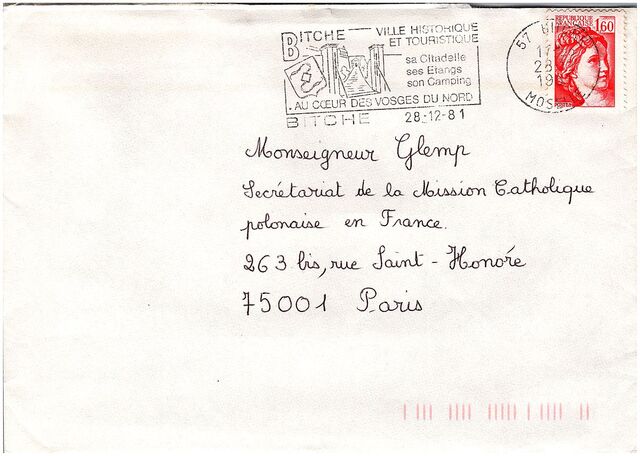 BITCHE VILLE HISTORIQUE
ET TOURISTIQUE
sa Citadelle
ses Etangs
son Camping
AU CŒUR DES VOSGES DU NORD
BITCHE 28-12-81
57
28
19
MOS
REPUBLIQUE
FRANÇAISE
1,60
POSTES
Monseigneur Glemp
Secrétariat de la Mission Catholique
polonaise en France.
263 bis, rue Saint-Honoré
75001 Paris